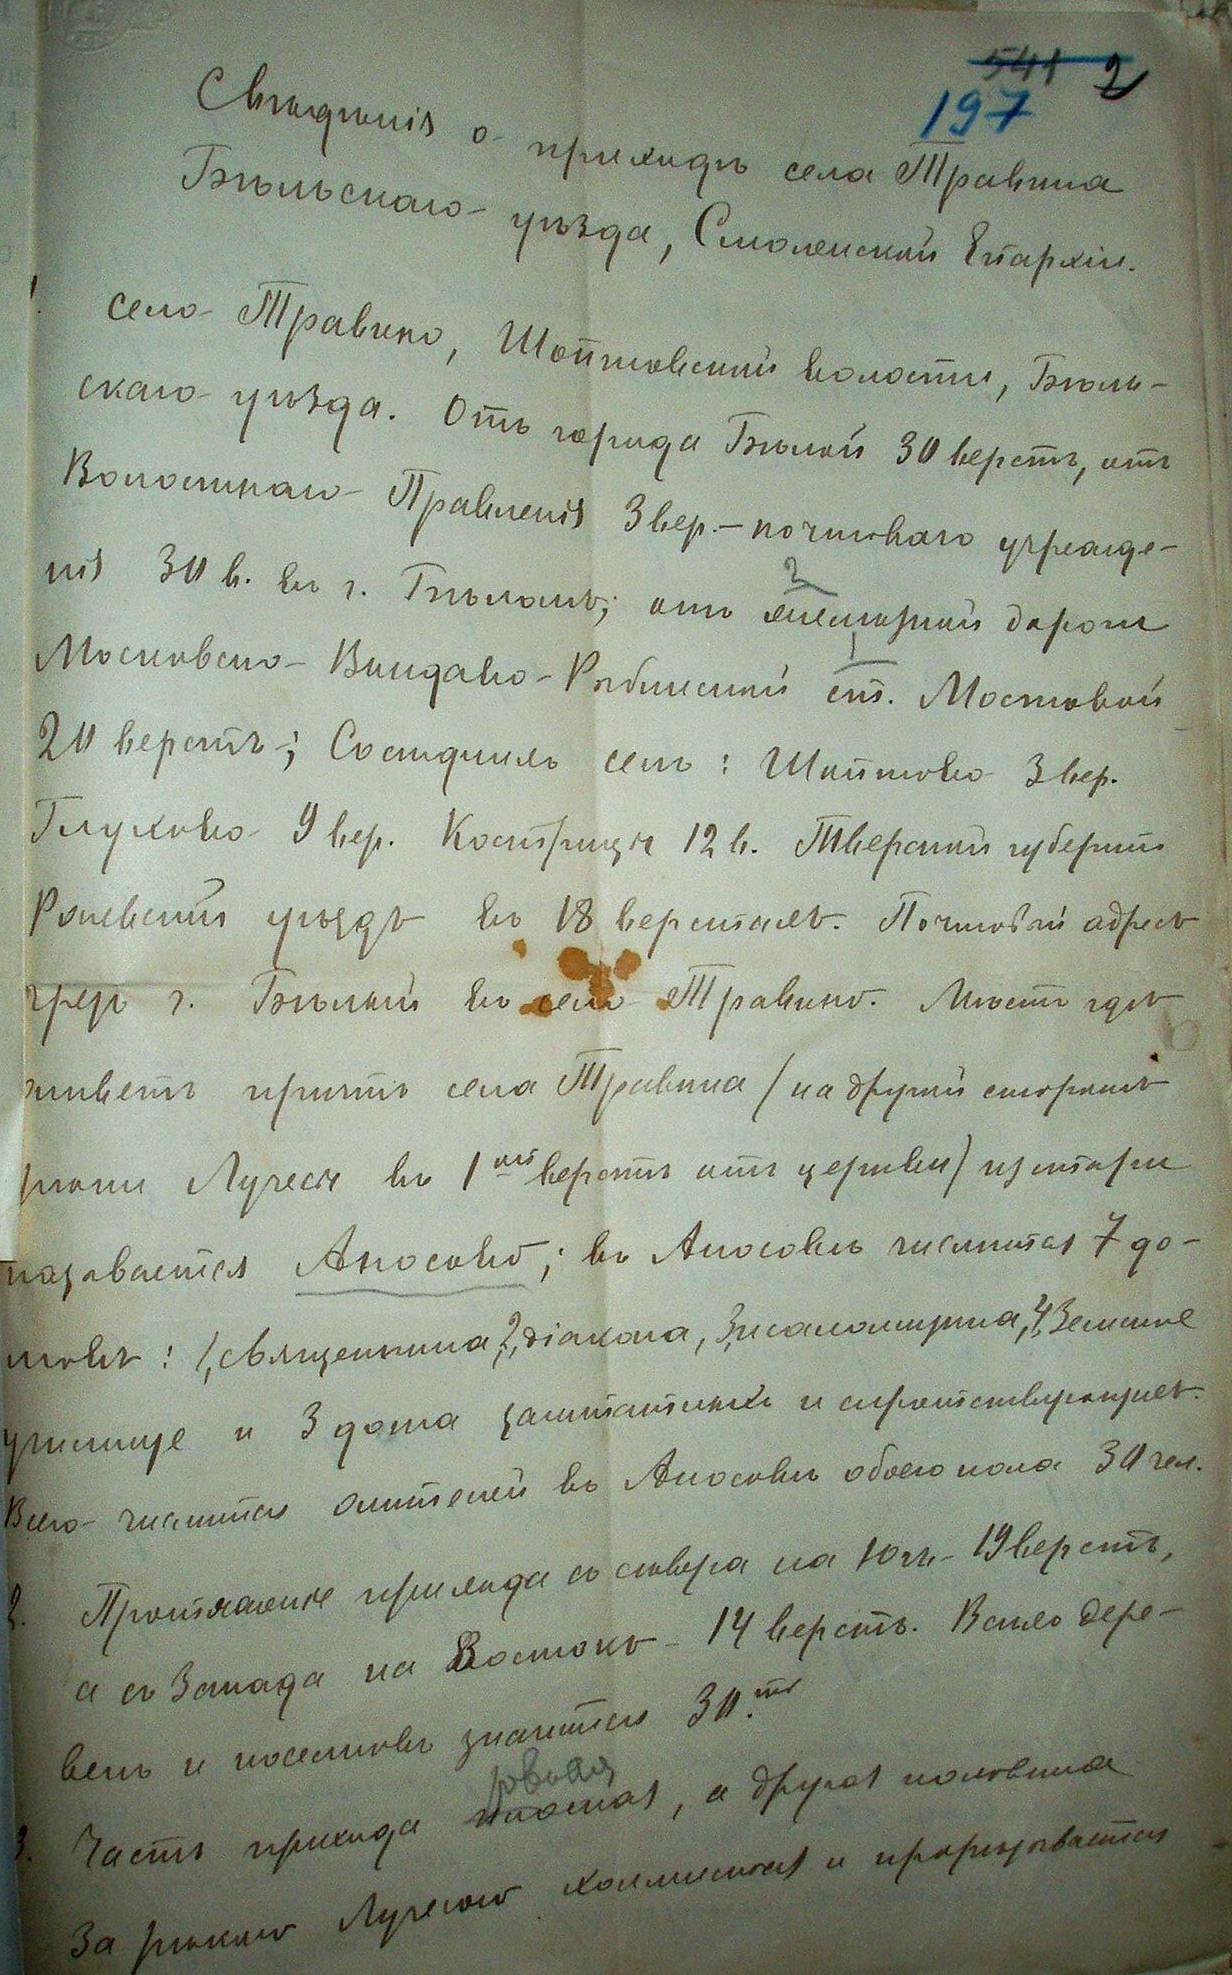 541 2
197
Свѣдѣнія о приходѣ села Травина
Бѣльскаго уѣзда, Смоленской Епархіи.
1. Село Травино, Шоптовской волости, Бѣль-
скаго уѣзда. Отъ города Бѣлой 30 верстъ, отъ
Волостнаго Правленія 3 вер. – почтоваго учрежде-
нія 30 в. въ г. Бѣломъ; отъ желѣзной дороги
2
1
Московско-Виндаво-Рыбинской ст. Мостовой
20 верстъ; Сосѣднихъ селъ: Шоптово 3 вер.
Глухово 9 вер. Кострицы 12 в. Тверской губерніи
Ржевскій уѣздъ въ 18 верстахъ. Почтовый адресъ
чрезъ г. Бѣлый въ село Травино. Мѣсто гдѣ
живетъ причтъ села Травина /на другой сторонѣ
рѣки Лучесы въ 1 ой верстѣ отъ церкви/ изстари
называется Аносово; въ Аносовѣ числится 7 до-
мовъ: 1, священника, 2, діакона, 3, псаломщика, 4, Земское
училище и 3 дома заштатныхъ и сиротствующихъ.
Всего числится жителей въ Аносовѣ обоего пола 30 чел.
2. Протяженіе прихода съ сѣвера на югъ – 19 верстъ,
а съ Запада на Востокъ – 14 верстъ. Всѣхъ дере-
вень и поселковъ значится 30. ть
ровная
3. Часть прихода, а другая половина
За рѣкою Лучесою холмистая и прорѣзывается